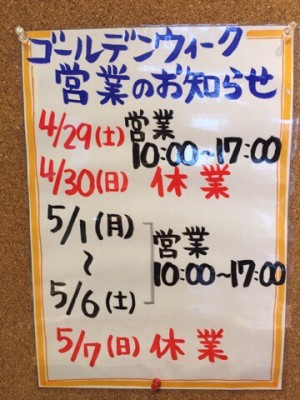 ゴールデンウィーク
営業のお知らせ
4/29(土) 営業 10:00~17:00
4/30(日) 休業
5/1(月)
~
5/6(土)
営業
10:00~17:00
5/7(日) 休業